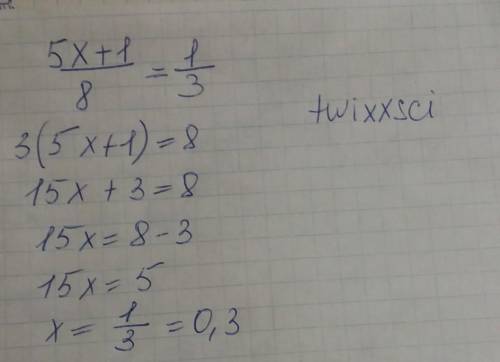 5x+1/8 = 1/3
twixxsci
3(5x+1)=8
15x + 3 = 8
15x = 8 - 3
15x = 5
x = 1/3 = 0,3